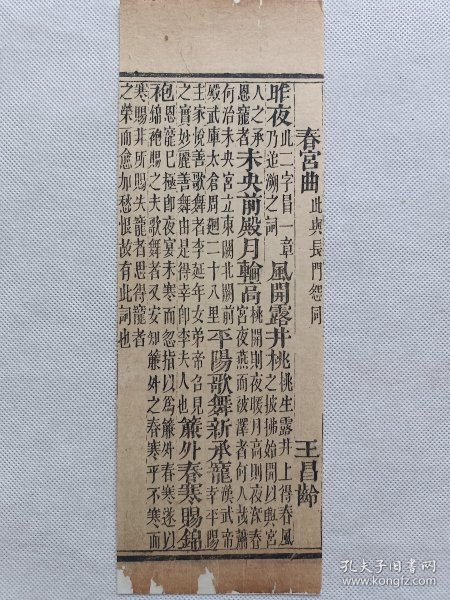 春宮曲 此與長門怨同 王昌齡
昨夜 此二字冒一章
乃追溯之詞
風開露井桃 桃生露井上得春風
之披拂始開以興宮
人之承
恩寵者
未央前殿月輪高 桃開則夜暖月高則夜深春
宮夜燕而彼澤者何人哉蕭
何治未央宮立東闕北闕前
殿武庫太倉周廻二十八里
平陽歌舞新承寵 漢武帝
幸平陽
主家悅善歌舞者李延年女弟帝召見
之實妙麗善舞由是得幸即李夫人也
簾外春寒賜錦
袍 恩寵已極即夜宴未寒而忽指以爲簾外春寒遂以
錦袍賜之夫歌舞者又安知簾外之春寒乎不寒而
寒賜非所賜失寵者思得寵者
之榮而愈加愁恨故有此詞也
孔夫子旧书网